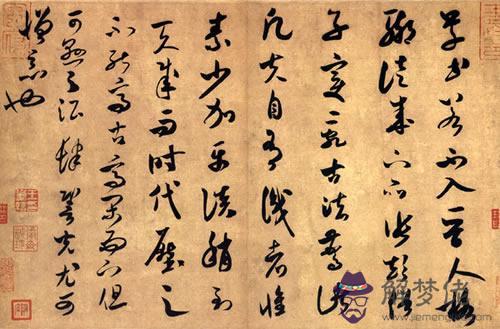 草書若不入晉人格
聊徒成下品張顛俗
子變亂古法驚諸
凡夫自有識者懷
素少加平淡稍到
天成而時代壓之
不能高古高閑而下但
可懸之酒肆䛒光尤可
憎惡也
解梦佬